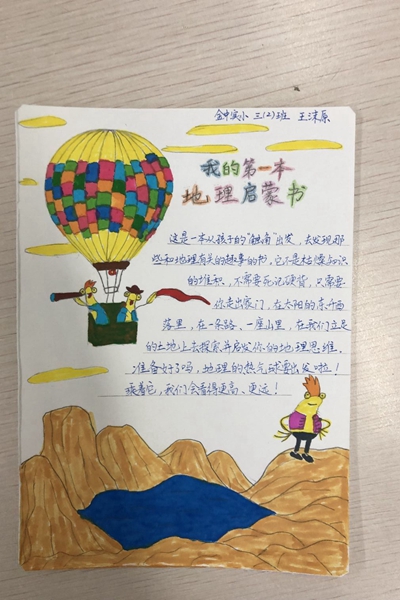 金中实小 三(2)班 王沫原
我的第一本
地理启蒙书
这是一本从孩子的"触角"出发，去发现那
些和地理有关的趣事的书，它不是枯燥知识
的堆积，不需要死记硬背，只需要
你走出家门，在太阳的东升西
落里，在一条路、一座山里，在我们立足
的土地上去探索并启发你的地理思维。
准备好了吗，地理的热气球要出发啦！
乘着它，我们会看得更高、更远！